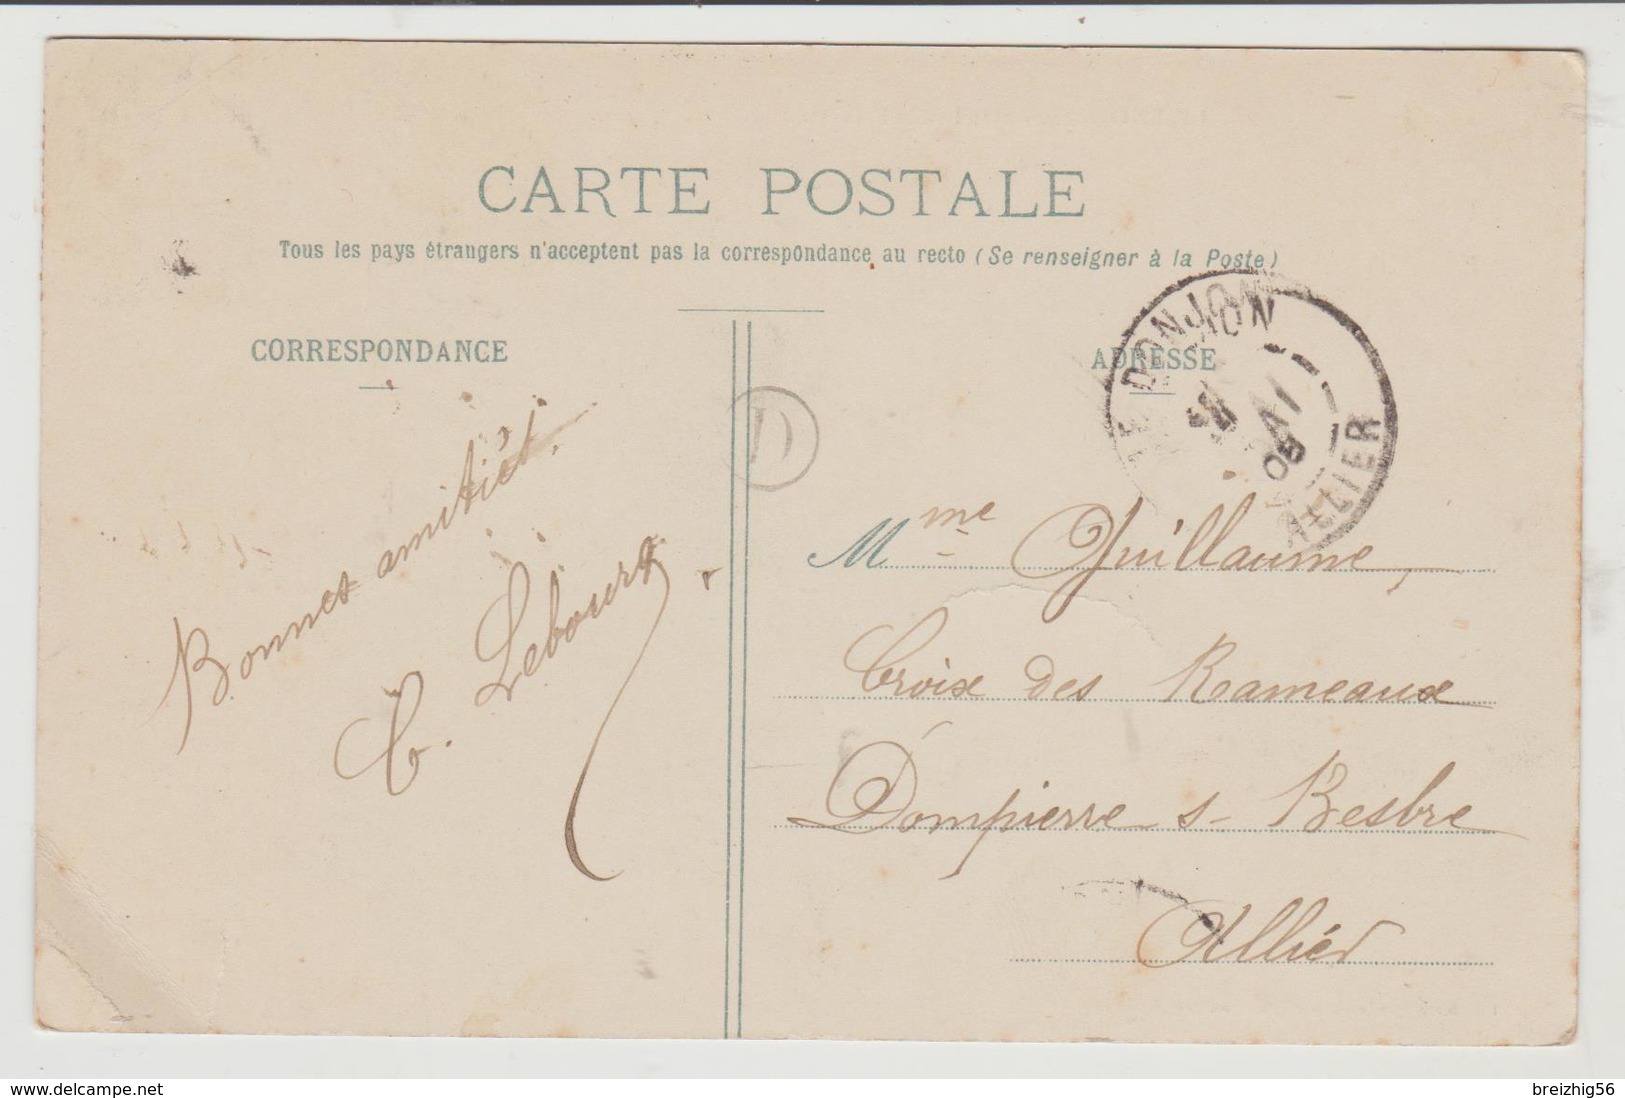 CARTE POSTALE
Tous les pays étrangers n'acceptent pas la correspondance au recto (Se renseigner à la Poste)
CORRESPONDANCE
ADRESSE
LE DONJON
05
ALLIER
D
Bonnes amitiés.
Lebourg
Mme Guillaume,
Croix des Rameaux
Dompierre s- Besbre
Allier
www.delcampe.net
breizhig56